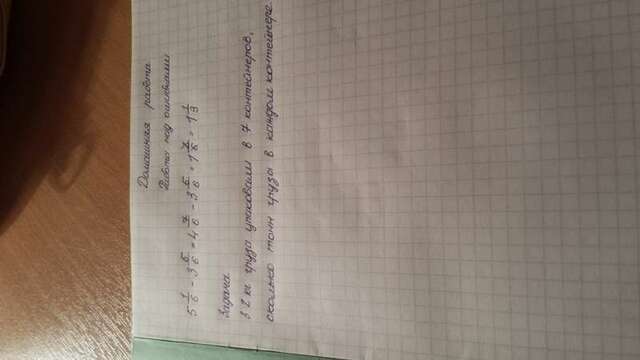 Домашняя работа
Работа над ошибками
5 1/6 - 3 5/6 = 4 7/6 - 3 5/6 = 1 2/6 = 1 1/3
Задача
груза упаковали в 7 контейнеров,
сколько тонн груза в каждом контейнере